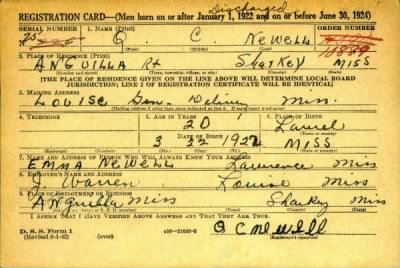 Discharged
REGISTRATION CARD—(Men born on or after January 1, 1922 and on or before June 30, 1924)
SERIAL NUMBER 1. NAME (Print) ORDER NUMBER
Q. C Newell
2. PLACE OF RESIDENCE (Print)
ANGUILLA Rt SharKey MISS
(Town, township, village, or city) (County) (State)
[THE PLACE OF RESIDENCE GIVEN ON THE LINE ABOVE WILL DETERMINE LOCAL BOARD
JURISDICTION; LINE 2 OF REGISTRATION CERTIFICATE WILL BE IDENTICAL]
3. MAILING ADDRESS
Louise Gen. Delivery Miss.
[Mailing address if other than place indicated on line 2. If same insert word same]
4. TELEPHONE 5. AGE IN YEARS 6. PLACE OF BIRTH
20 Laurel
DATE OF BIRTH (Town or county)
3 22 1922 MISS
(Mo.) (Day) (Yr.) (State or country)
7. NAME AND ADDRESS OF PERSON WHO WILL ALWAYS KNOW YOUR ADDRESS
EMMA NEWELL Lawrence Miss
8. EMPLOYER'S NAME AND ADDRESS
J. Warren Louise Miss
9. PLACE OF EMPLOYMENT OR BUSINESS
ANguilla Miss Sharkey Miss
I AFFIRM THAT I HAVE VERIFIED ABOVE ANSWERS AND THAT THEY ARE TRUE.
D. S. S. Form 1
(Revised 6-1-42) (over) 16—21630-2 Q C Newell
(Registrant's signature)